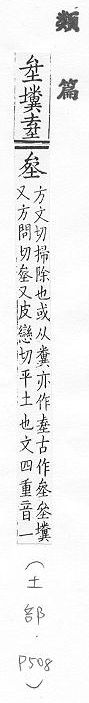 類篇
坌㙻𡋯
坌
方文切掃除也或从糞亦作𡋯古作坌坌㙻
又方問切坌又皮戀切平土也文四重音一
(土部.P508)